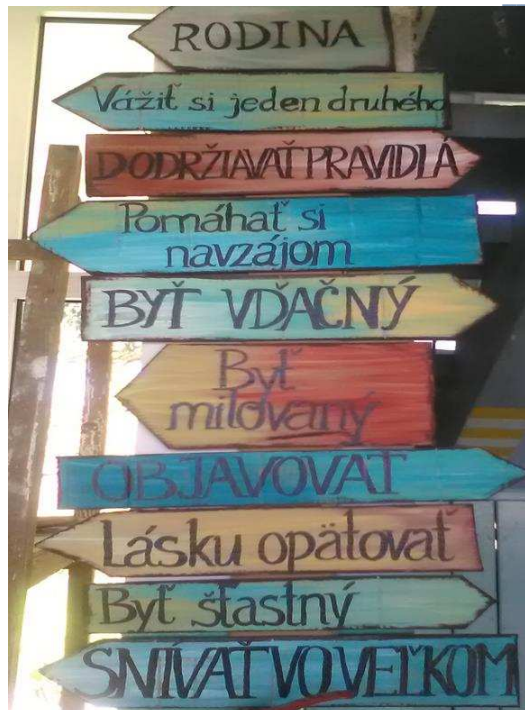 RODINA
Vážiť si jeden druhého
DODRŽIAVAŤ PRAVIDLÁ
Pomáhať si
navzájom
BYŤ VĎAČNÝ
Byť
milovaný
OBJAVOVAŤ
Lásku opätovať
Byť šťastný
SNÍVAŤ VO VEĽKOM